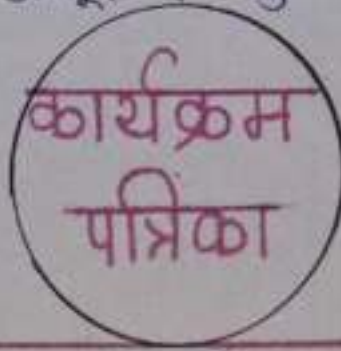 कार्यक्रम
पत्रिका